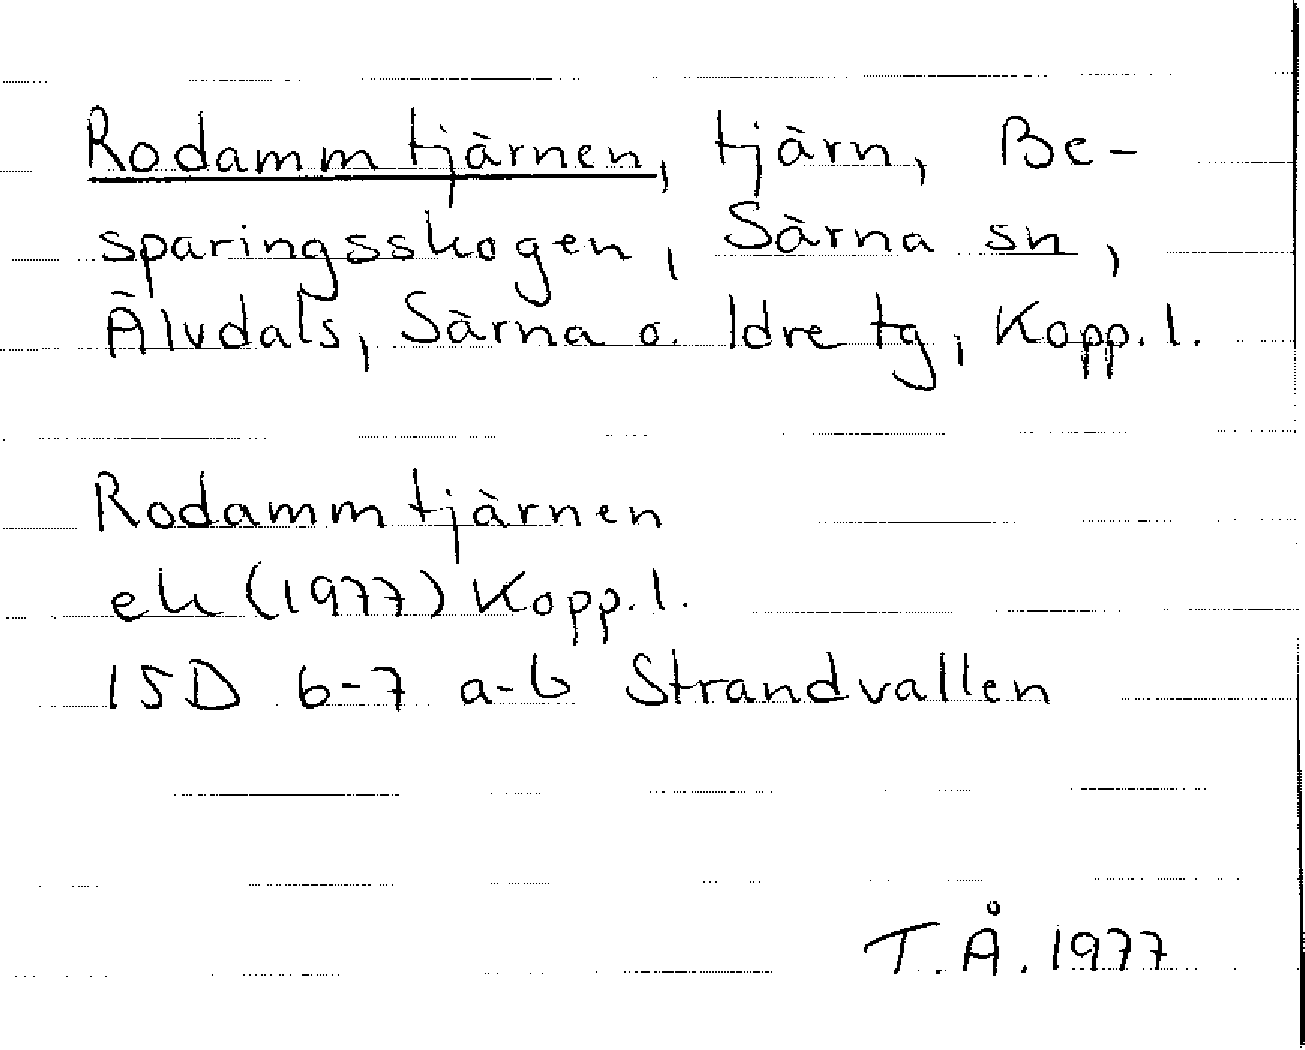 Rodammtjärnen, tjärn, Be-
sparingsskogen, Särna sn,
Älvdals, Särna o. Idre tg, Kopp. l.
Rodammtjärnen
ek (1977) Kopp. l.
15D 6-7 a-b Strandvallen
T.Å. 1977